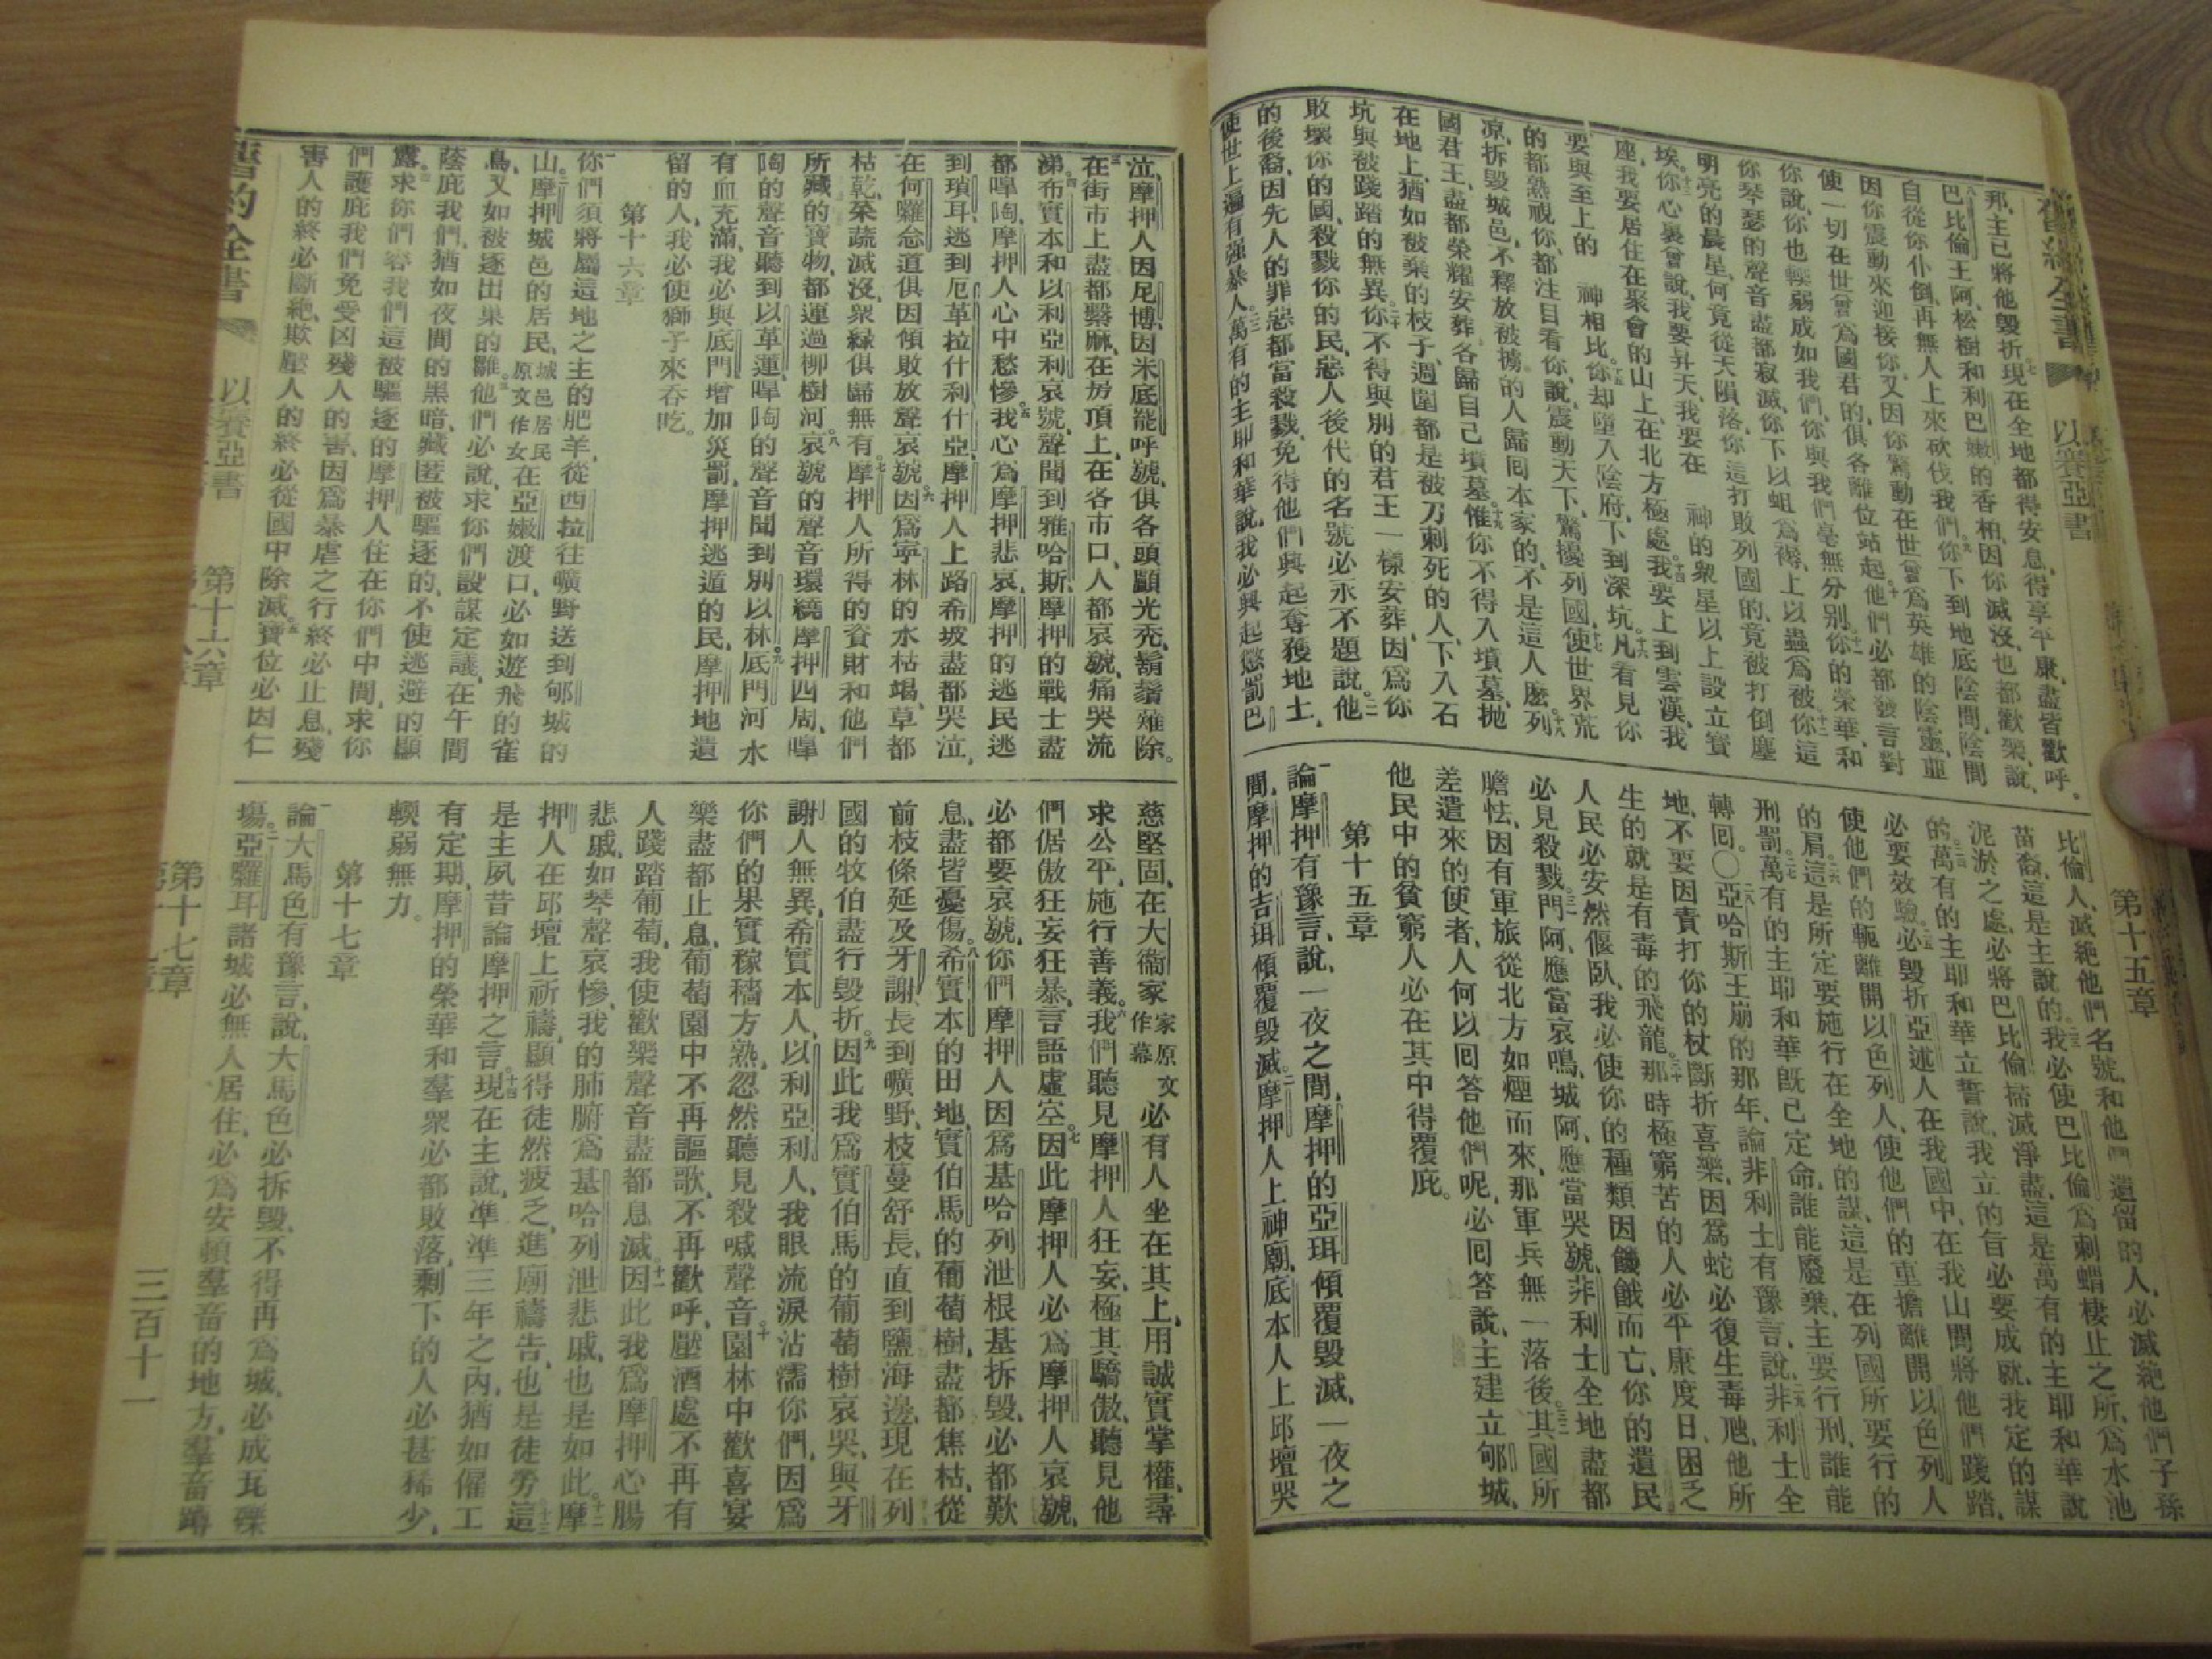 舊約全書 以賽亞書 第十五章
邦、主已將他毀折、七現在全地都得安息、得享平康、盡皆歡呼。
八巴比倫王阿、松樹和利巴嫩的香柏、因你滅沒、也都歡樂、說、
自從你仆倒、再無人上來砍伐我們、九你下到地底陰間、陰間
因你震動來迎接你、又因你驚動在世曾爲英雄的陰靈、並
使一切在世曾爲國君的、俱各離位站起。十他們必都發言對
你說、你也輭弱成如我們、你與我們毫無分別。十一你的榮華、和
你琴瑟的聲音盡都寂滅、你下以蛆爲褥、上以蟲爲被、十二你這
明亮的晨星、何竟從天隕落、你這打敗列國的、竟被打倒塵
埃。十三你心裏曾說、我要昇天、我要在 神的衆星以上設立寶
座、我要居住在聚會的山上、在北方極處、十四我要上到雲漢、我
要與至上的 神相比。十五你却墮入陰府、下到深坑。十六凡看見你
的都熟視你、都注目看你、說、震動天下、驚擾列國、十七使世界荒
凉、拆毀城邑、不釋放被擄的人歸囘本家的、不是這人麼。十八列
國君王、盡都榮耀安葬、各歸自己墳墓。十九惟你不得入墳墓、抛
在地上、猶如被棄的枝子、週圍都是被刀刺死的人、下入石
坑、與被踐踏的無異。二十你不得與別的君王一樣安葬、因爲你
敗壞你的國、殺戮你的民、惡人後代的名號、必永不題說他。二一
的後裔、因先人的罪惡、都當殺戮、免得他們興起奪獲地土、
使世上遍有强暴人。二二萬有的主耶和華說、我必興起懲罰巴
比倫人、滅絶他們名號、和他們遺留的人、必滅絶他們子孫
苗裔、這是主說的。二三我必使巴比倫爲刺蝟棲止之所、爲水池
泥淤之處、必將巴比倫掃滅淨盡、這是萬有的主耶和華說
的。二四萬有的主耶和華立誓說、我立的旨必要成就、我定的謀
必要效驗。二五必毀折亞述人在我國中、在我山間將他們踐踏、
使他們的軛離開以色列人、使他們的重擔離開以色列人
的肩。二六這是所定要施行在全地的謀、這是在列國所要行的
刑罰。二七萬有的主耶和華旣已定命、誰能廢棄、主要行刑、誰能
轉囘。〇二八亞哈斯王崩的那年、論非利士有豫言、說、二九非利士全
地、不要因責打你的杖斷折喜樂、因爲蛇必復生毒虺、他所
生的就是有毒的飛龍。三十那時極窮苦的人必平康度日、困乏
人民必安然偃臥、我必使你的種類因饑餓而亡、你的遺民
必見殺戮。三一門阿、應當哀鳴、城阿、應當哭號、非利士全地盡都
膽怯、因有軍旅從北方如煙而來、那軍兵無一落後。三二其國所
差遣來的使者、人何以囘答他們呢、必囘答說、主建立郇城、
他民中的貧窮人必在其中得覆庇。
第十五章
一論摩押有豫言、說、一夜之間、摩押的亞珥傾覆毀滅、一夜之
間、摩押的吉珥傾覆毀滅、二摩押人上神廟、底本人上邱壇哭
泣、摩押人因尼博、因米底罷呼號、俱各頭顱光禿、鬍鬚薙除。
三在街市上盡都繫麻、在房頂上、在各市口、人都哀號、痛哭流
涕。四希實本和以利亞利哀號、聲聞到雅哈斯、摩押的戰士盡
都嘷啕、摩押人心中愁慘。五我心爲摩押悲哀、摩押的逃民逃
到瑣耳、逃到厄革拉什利什亞、摩押人上路希坡盡都哭泣、
在何囉念道俱因傾敗放聲哀號。六因爲寧林的水枯竭、草都
枯乾、菜蔬滅沒、衆綠俱歸無有。七摩押人所得的資財和他們
所藏的寶物、都運過柳樹河。八哀號的聲音環繞摩押四周、嘷
啕的聲音聽到以革蓮、嘷啕的聲音聞到別以林。九底門河水
有血充滿、我必與底門增加災罰、摩押逃遁的民、摩押地遺
留的人、我必使獅子來吞吃。
第十六章
一你們須將屬這地之主的肥羊、從西拉往曠野送到郇城的
山。二摩押城邑的居民、城邑居民原文作女在亞嫩渡口、必如遊飛的雀
鳥、又如被逐出巢的雛。三他們必說、求你們設謀定議、在午間
蔭庇我們、猶如夜間的黑暗、藏匿被驅逐的、不使逃避的顯
露。四求你們容我們這被驅逐的摩押人住在你們中間、求你
們護庇我們免受凶殘人的害、因爲暴虐之行終必止息、殘
害人的終必斷絶、欺壓人的終必從國中除滅。五寶位必因仁
慈堅固、在大衞家家原文作幕必有人坐在其上、用誠實掌權、尋
求公平、施行善義。六我們聽見摩押人狂妄、極其驕傲、聽見他
們倨傲狂妄狂暴、言語虛空。七因此摩押人必爲摩押人哀號、
必都要哀號、你們摩押人因爲基哈列泄根基拆毀、必都歎
息、盡皆憂傷。八希實本的田地、實伯馬的葡萄樹、盡都焦枯、從
前枝條延及牙謝、長到曠野、枝蔓舒長、直到鹽海邊、現在列
國的牧伯盡行毀折。九因此我爲實伯馬的葡萄樹哀哭、與牙
謝人無異、希實本人、以利亞利人、我眼流淚沾濡你們、因爲
你們的果實稼穡方熟、忽然聽見殺喊聲音。十園林中歡喜宴
樂盡都止息、葡萄園中不再謳歌、不再歡呼、壓酒處不再有
人踐踏葡萄、我使歡樂聲音盡都息滅。十一因此我爲摩押心腸
悲戚、如琴聲哀慘、我的肺腑爲基哈列泄悲戚、也是如此。十二摩
押人在邱壇上祈禱、顯得徒然疲乏、進廟禱告、也是徒勞。十三這
是主夙昔論摩押之言。十四現在主說、準準三年之內、猶如僱工
有定期、摩押的榮華和羣衆必都敗落、剩下的人必甚稀少、
輭弱無力。
第十七章
一論大馬色有豫言、說、大馬色必拆毀、不得再爲城、必成瓦礫
場。二亞囉耳諸城必無人居住、必爲安頓羣畜的地方、羣畜蹲
舊約全書 以賽亞書 第十六章 第十七章 三百十一